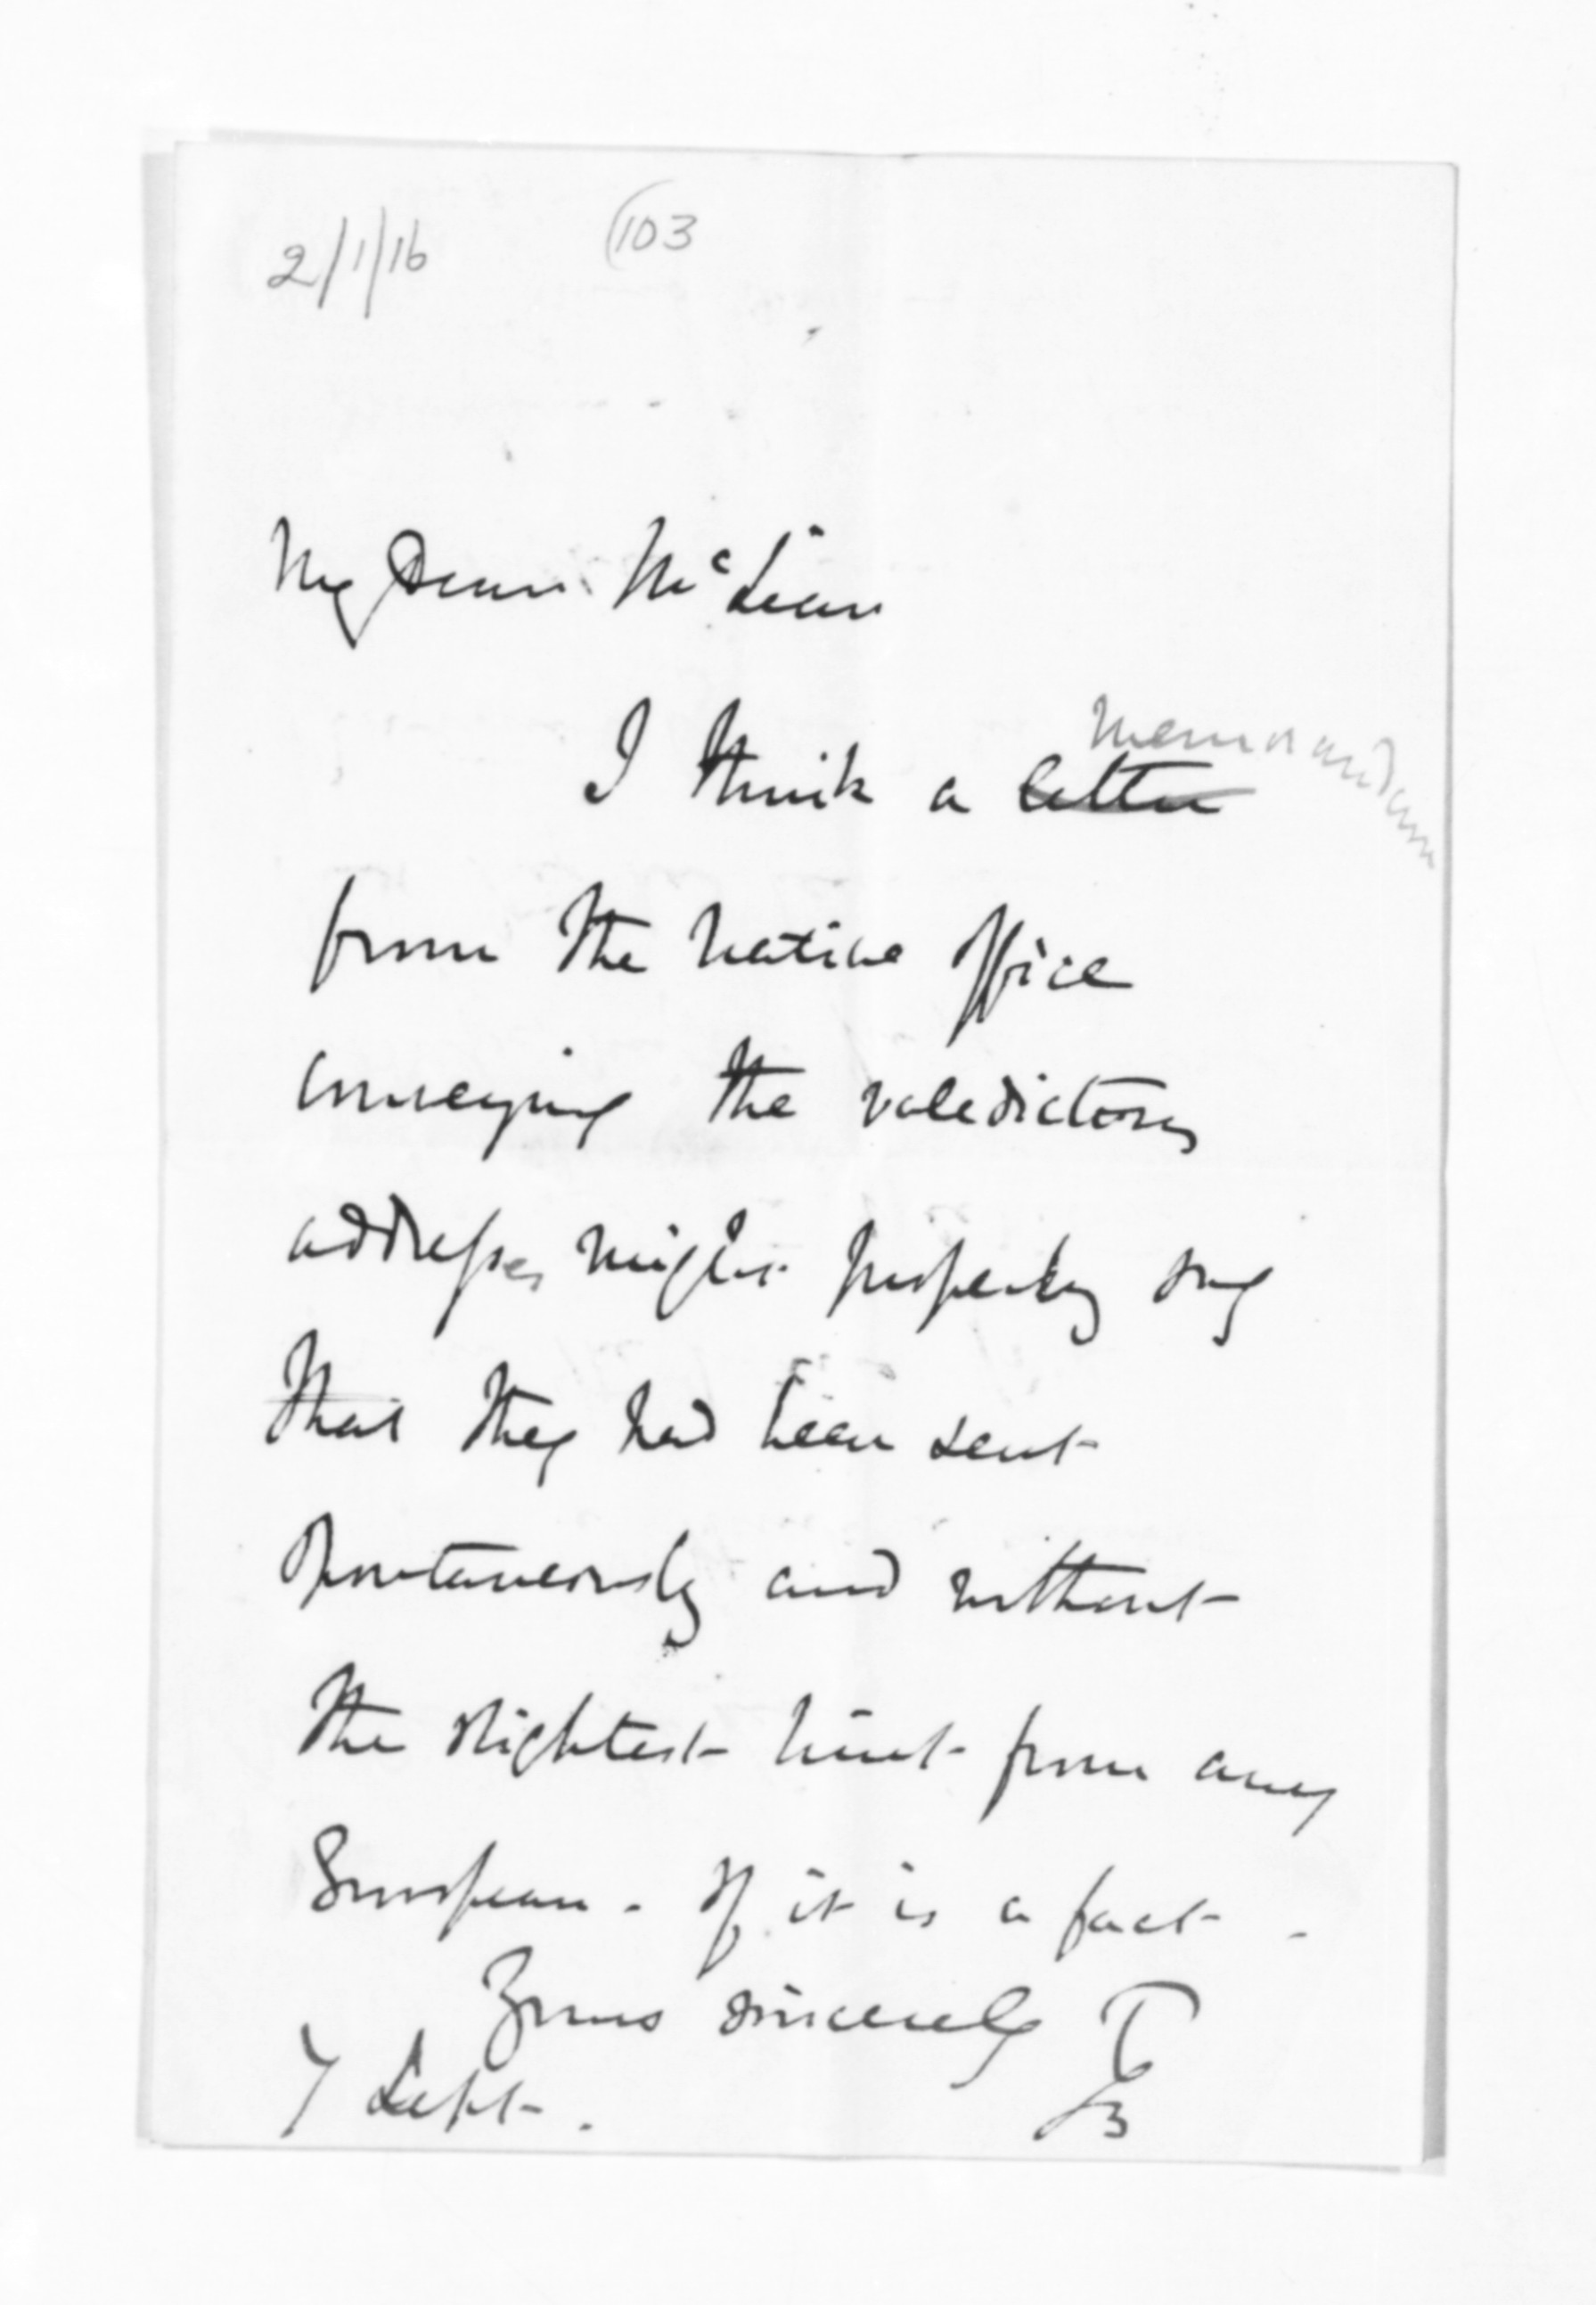 2/1/16 (103
My Dear McLean
memorandum
I think a letter
from the native office
conveying the valedictory
addresses might properly say
that they had been sent
spontaneously and without
the slightest hint from any
European. If it is a fact.
Yours sincerely T
7 Sept.